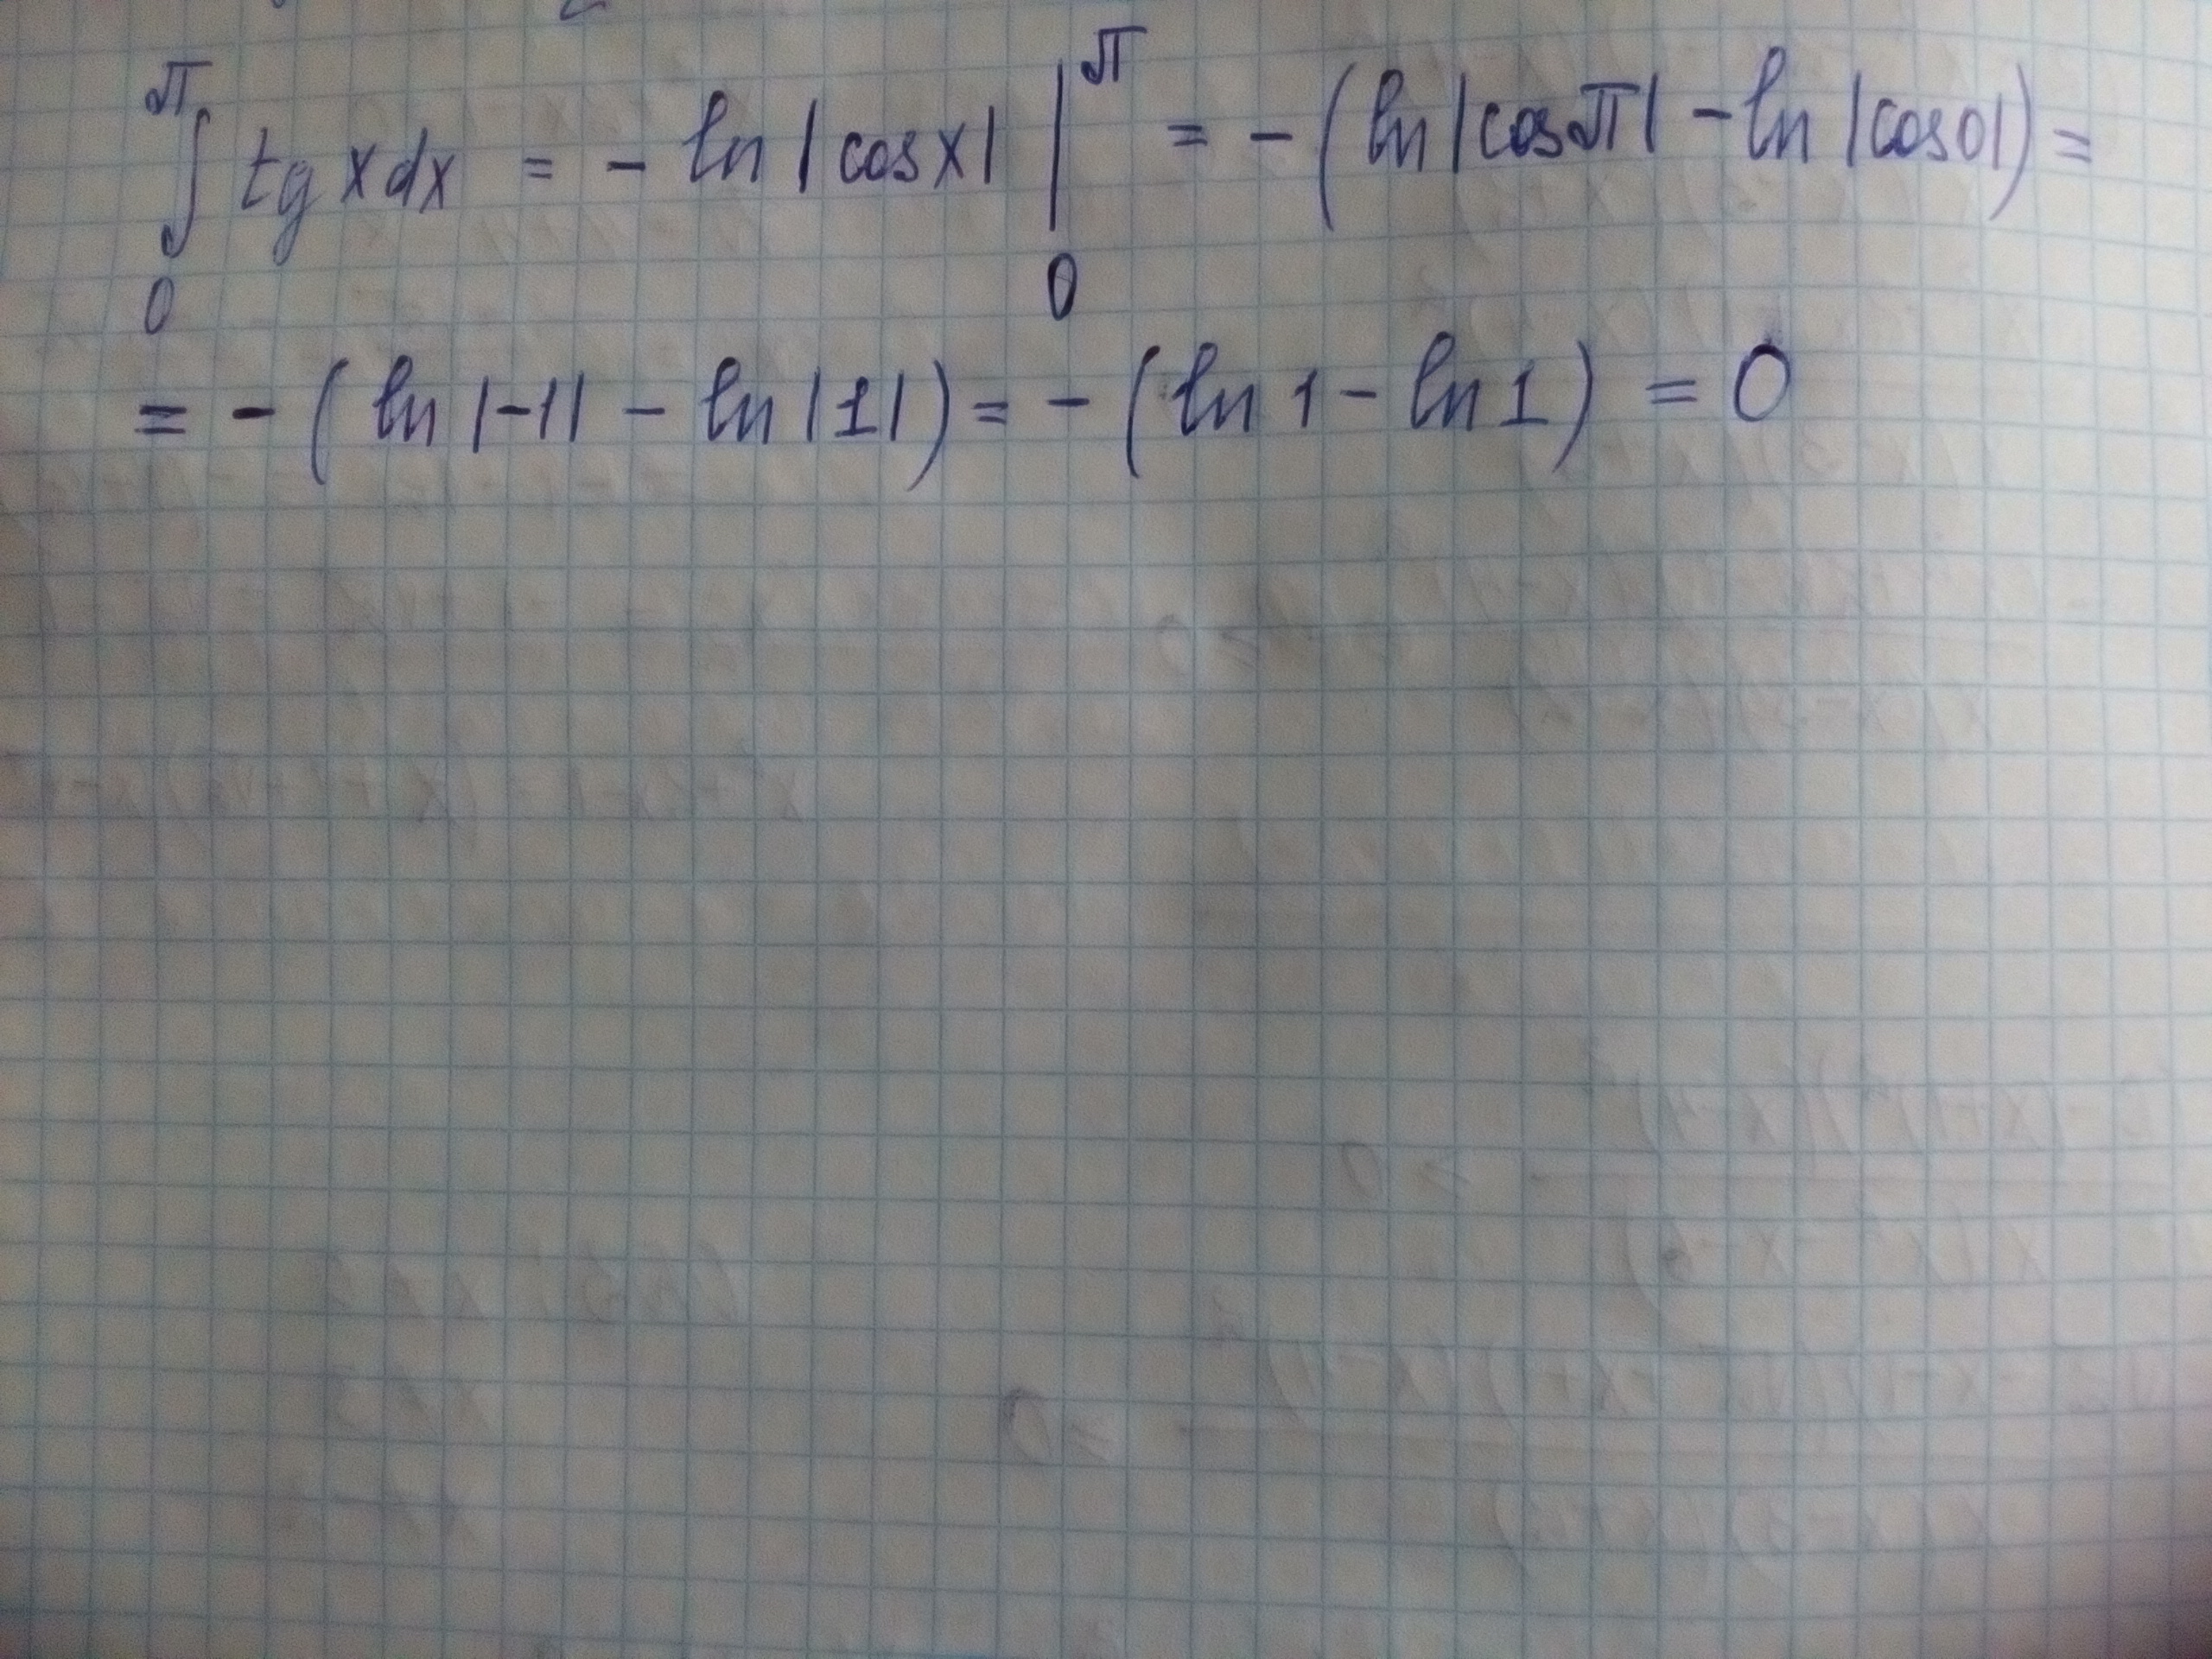 ∫₀^π tg x dx = - ln |cos x| |₀^π = - (ln |cos π| - ln |cos 0|) =
= - (ln |-1| - ln |1|) = - (ln 1 - ln 1) = 0